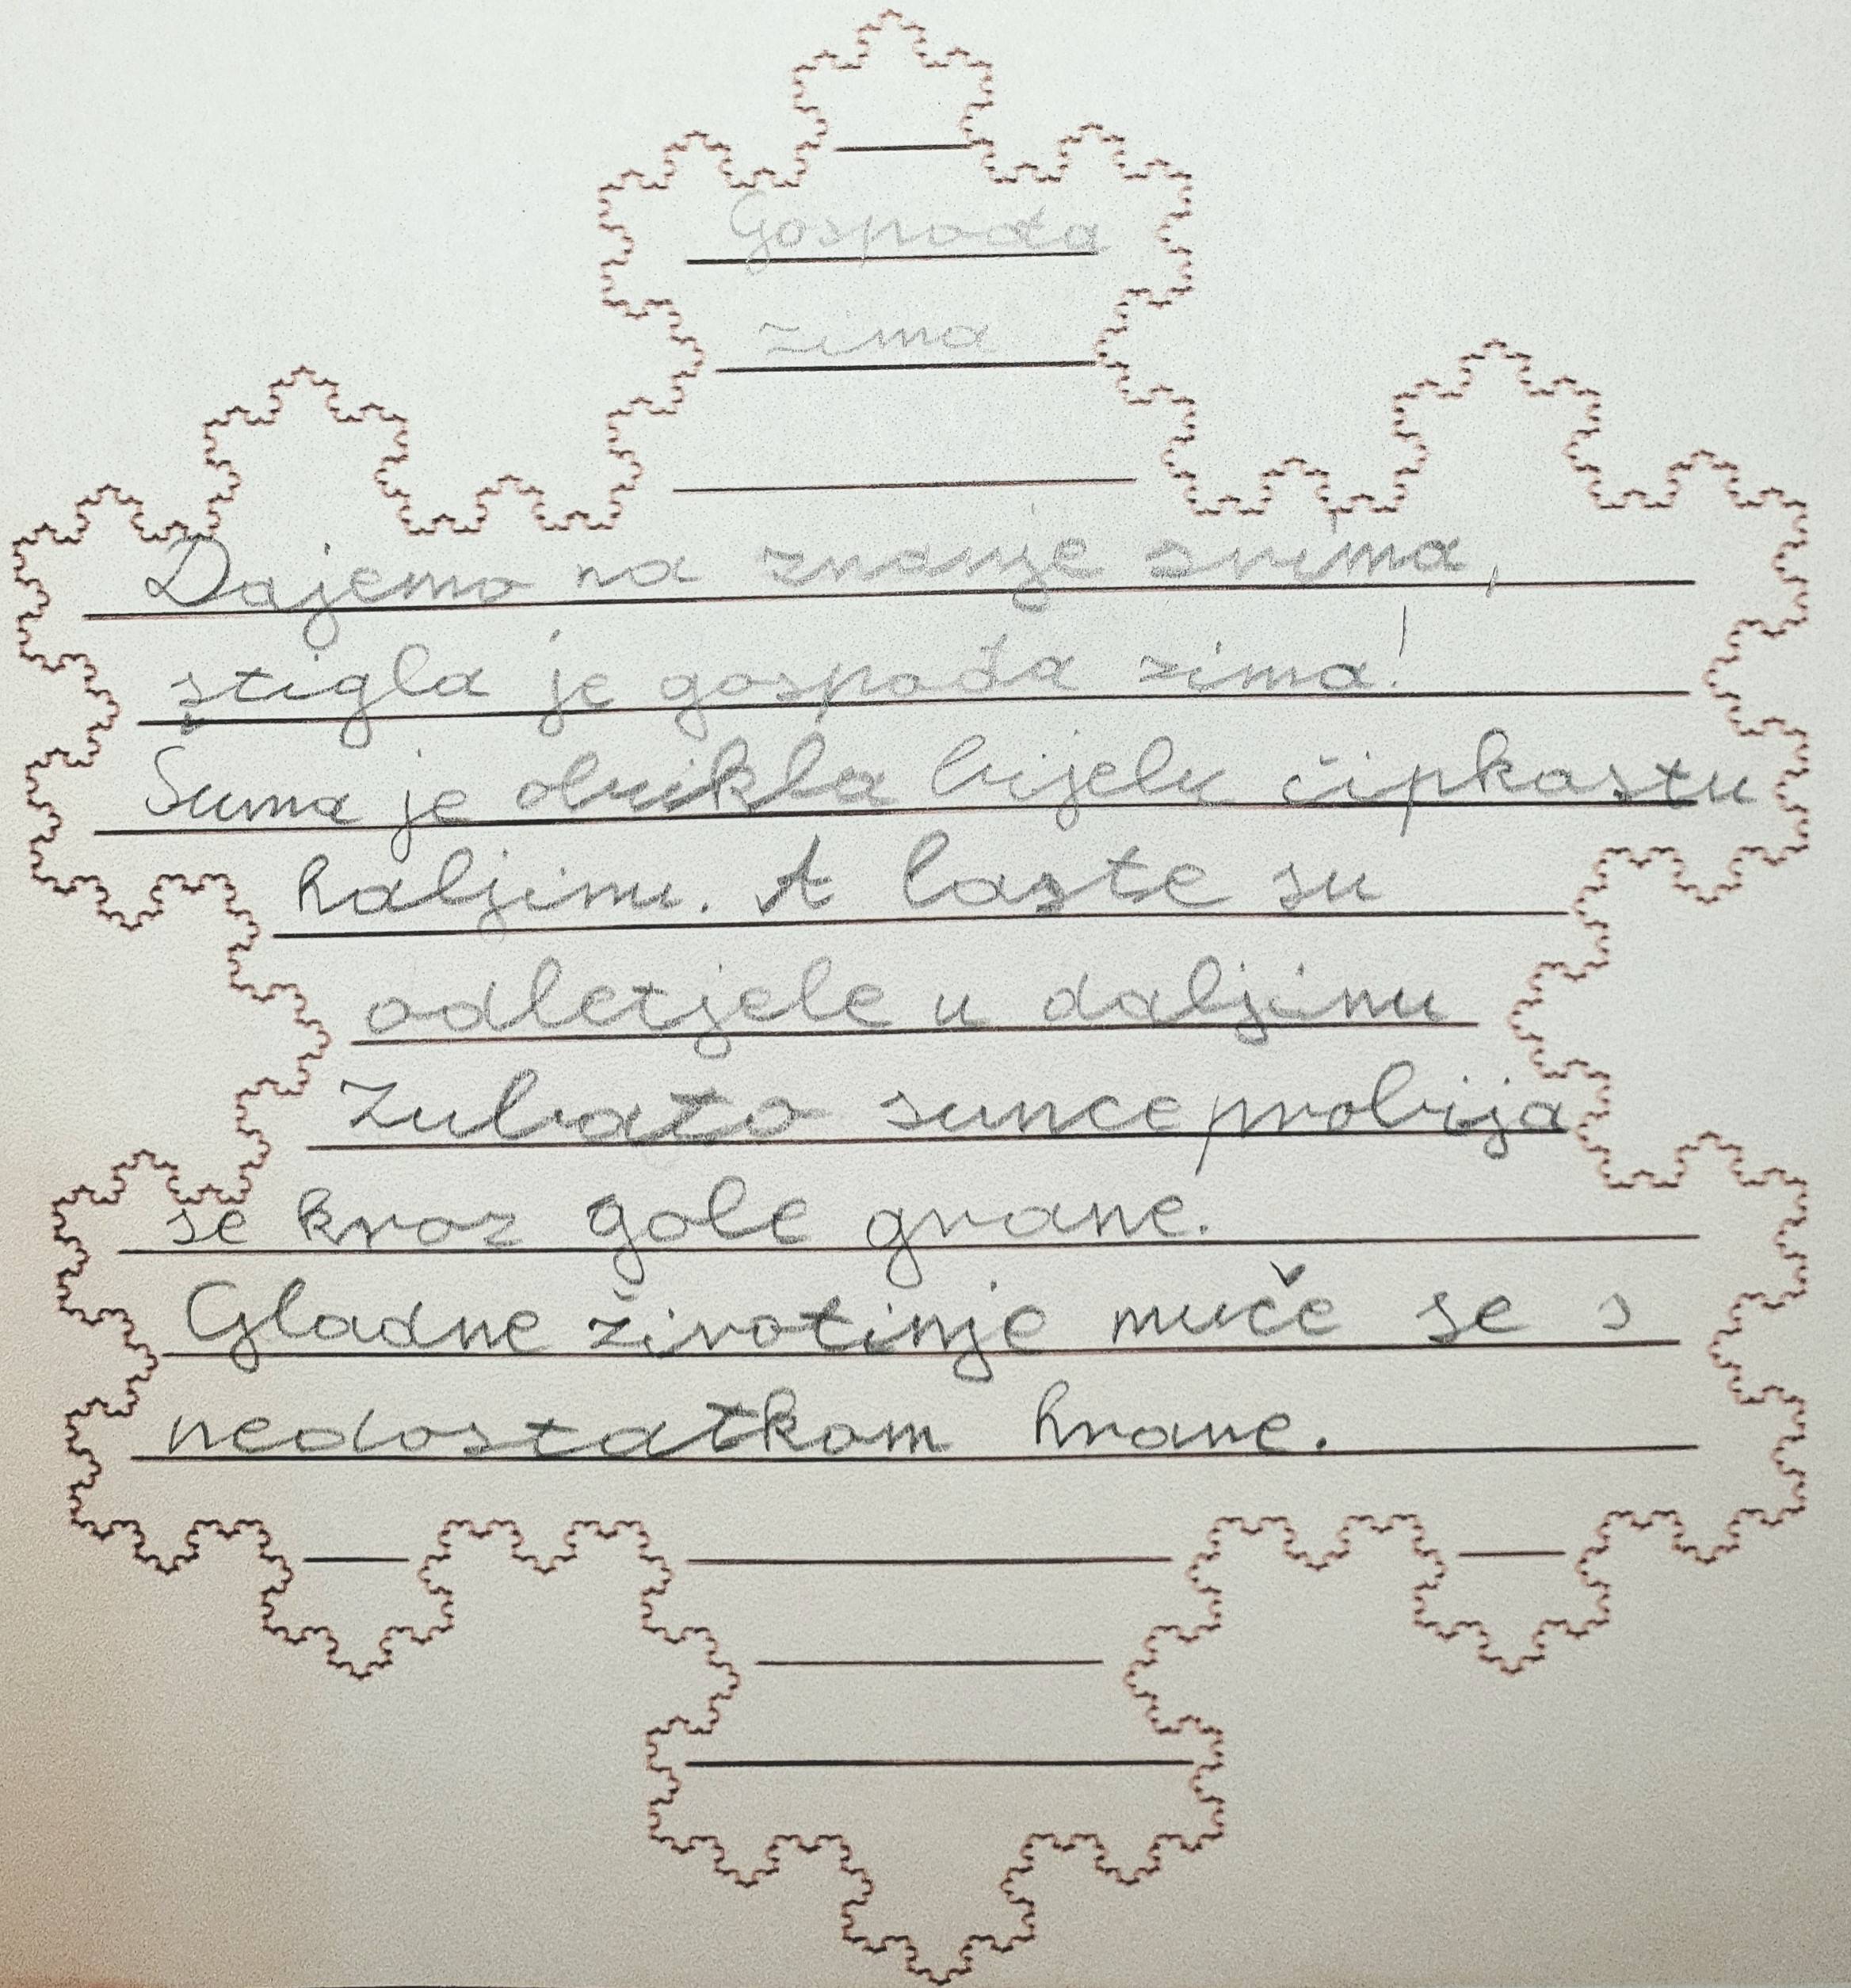 Gospođa
zima
Dajemo na znanje svima,
stigla je gospođa zima!
Šuma je obukla bijelu čipkastu
haljinu. A laste su
odletjele u daljinu
Zubato sunce probija
se kroz gole grane.
Gladne životinje muče se s
nedostatkom hrane.